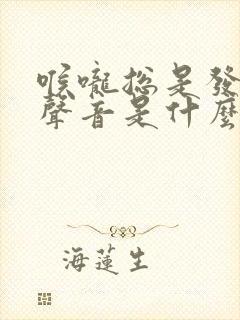 喉嚨總是發
聲音是什麼
海蓮生